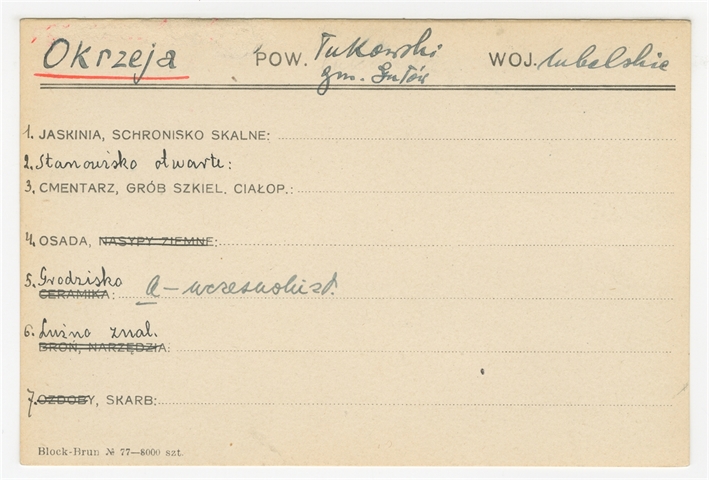 Okrzeja POW. Łukowski WOJ. lubelskie
gm. Gułów
1. JASKINIA, SCHRONISKO SKALNE:
2. Stanowisko otwarte:
3. CMENTARZ, GRÓB SZKIEL. CIAŁOP.:
4. OSADA, NASYPY ZIEMNE:
5. Grodzisko
CERAMIKA: a — wczesnohist.
6. Luźno znal.
BROŃ, NARZĘDZIA:
7. OZDOBY, SKARB:
Block-Brun № 77—8000 szt.